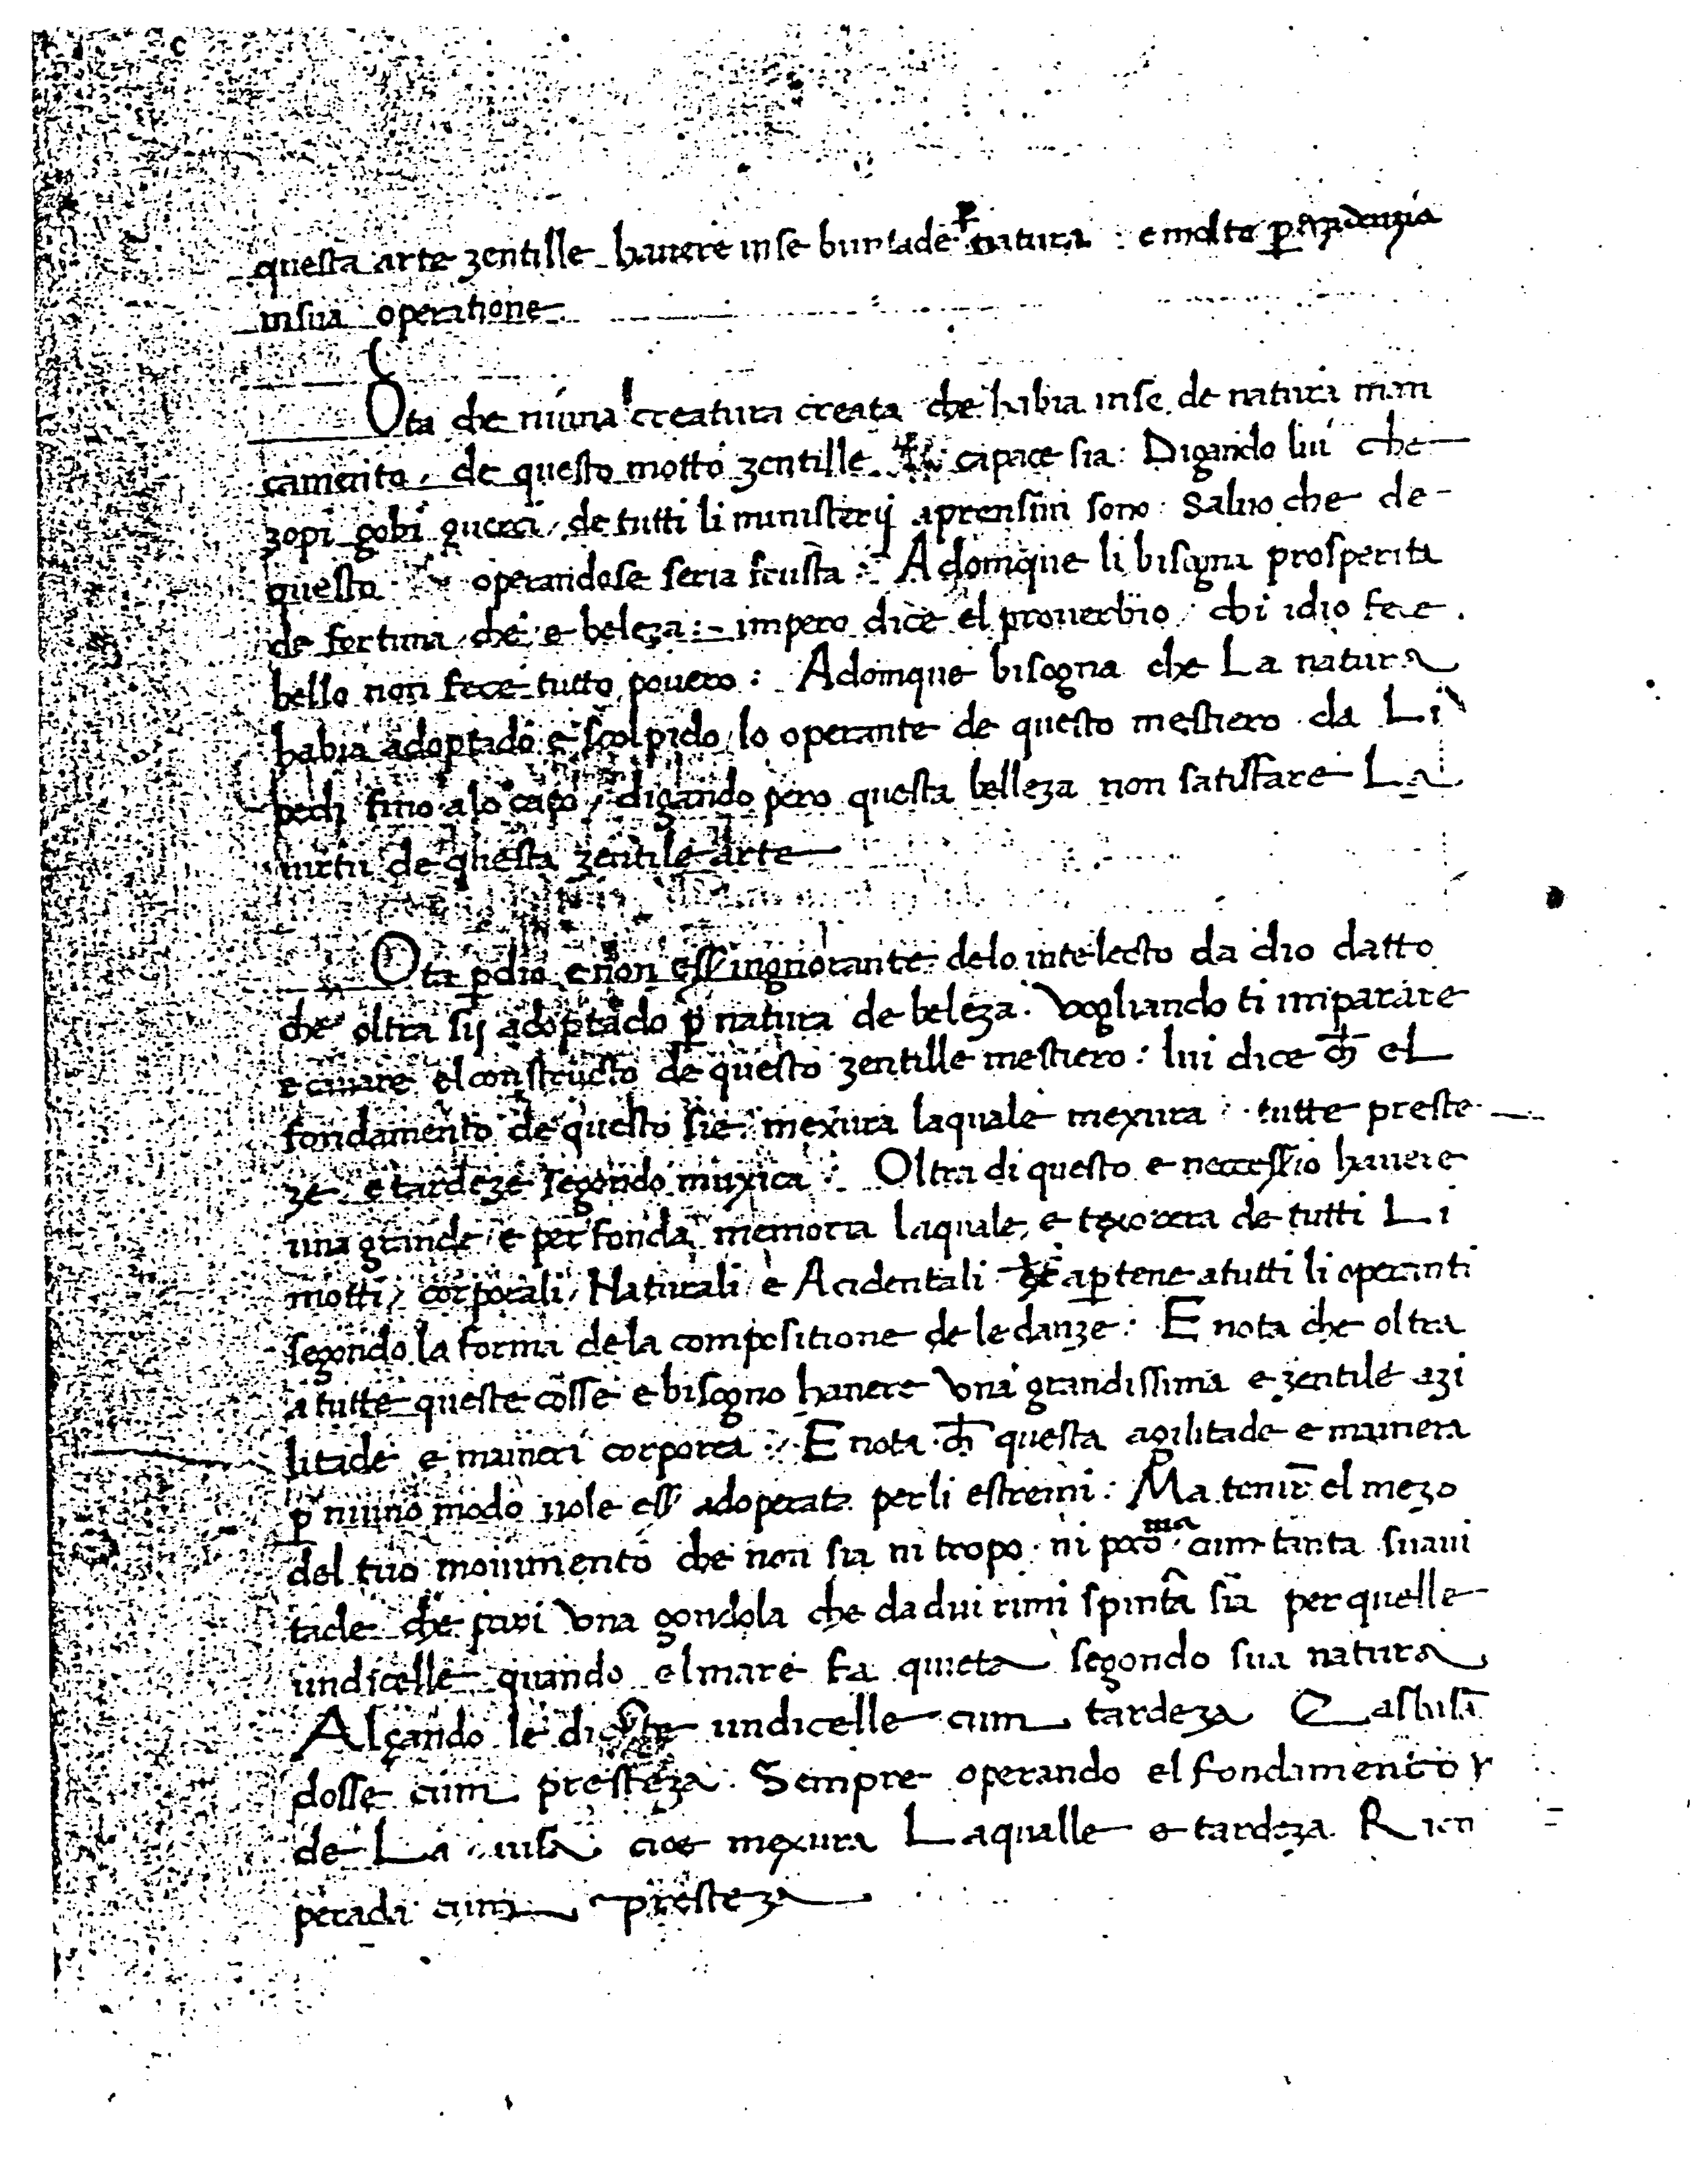 questa arte zentille havere in se buntade p natura : e molte p acidenzia
in sua operatione
Ota che niuna creatura creata che habia in se de natura man
camento, de questo motto zentille capace sia : Digando lui che
zopi gobi guerci, de tutti li ministerij aprensivi sono : Salvo che de
questo operandose seria frusta : Adomque li bisogna prosperita
de fortuna, che e beleza : impero dice el proverbio chi idio fece
bello non fece tutto povero : Adomque bisogna che La natura
habia adoptado e scolpido lo operante de questo mestiero da Li
pedi fino a lo capo, digando pero questa belleza non satisfare La
virtu de questa zentile arte
Ota p dio e non ess ingnorante de lo intelecto da dio datto
che oltra sij adoptado p natura de beleza. Vogliando ti imparare
e cavare el constructo de questo zentille mestiero : lui dice ch el
fondamento de questo sie mexura la quale mexura tutte preste
ze e tardeze segondo muxica : Oltra di questo e necessio havere
una grande e perfonda memoria la quale e texorera de tutti Li
motti, corporali, Naturali e Acidentali che aptene a tutti li operanti
segondo la forma de la compositione de le danze : E nota che oltra
a tutte queste cosse e bisogno havere Una grandissima e zentile azi
litade e maineri corporea : E nota ch questa agilitade e mainera
p niuno modo vole ess adoperata per li estremi : Ma tenir el mezo
del tuo movimento che non sia ni tropo ni poco ma cum tanta suavi
tade che pari Una gondola che da dui rimi spinta sia per quelle
undicelle quando el mare fa quieta segondo sua natura
Alçando le dicte undicelle cum tardeza E asbasan
dosse cum presteza. Sempre operando el fondamento
de La causa cioe mexura Laqualle e tardeza Ricu
perada cum presteza